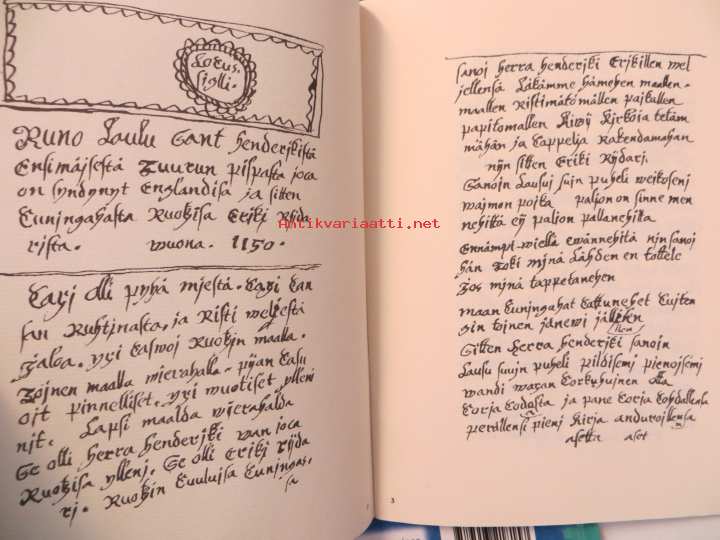 Locus
siglli.
Runo Laulu Sant henderjkistä
Ensimäjsestä Tuurun pispasta joca
on syndynyt Englandisa ja sitten
Cuningahasta Ruotzisa Erikj Rijda
rista. wuona. 1150.
Caxj olli pyhä mjestä. Caxj Can
san Ruhtjnasta, ja Risti weljestä
jaloa. yxi caswoj Ruotzin maalla.
Tojnen maalla mieraholla - pijan Casu
ojt pinnelliset. yxi wuotiset ylleni
njt. Lapsi maalda wierahalda
Se olli herra henderjki wan joca
Ruotzisa yllenj. Se olli Erikj rijda
rj. Ruotzin Cuulujsa Cuningas-
sa
sanoj herra henderjki Erjkillen wel
jellensä Läkämme hämehen maallen.
maallen Ristimätömällen pajkallen
papitomallen Kiwij Kirkoja tetäm
mähän ja Cappelja Rakendamahan
nijn sitten Eriki Rijdarj.
Sanoin Lausuj suin puheli weikosenj
waimon pojka paljon on sinne men
nehitä eij paljon pallanehita
Ennämpi wiellä ewännehitä nin sanoj
hän Toki mjnä Lähden en tottele
Jos mjnä tappetanehen
maan Cuningahat Cattunehet Cujten
gin tojnen jänewi jällihen
llen
Sitten herra henderjki sanoin
Lausu suujn puheli pildisemj pienojsemj
wandi waxan Corkuhujnen Ota
Corja Codosta ja pane Corja Cohdallensa
perällensi pienj Kirja andurojllensa
asetta aset
3
Antikvariaatti.net